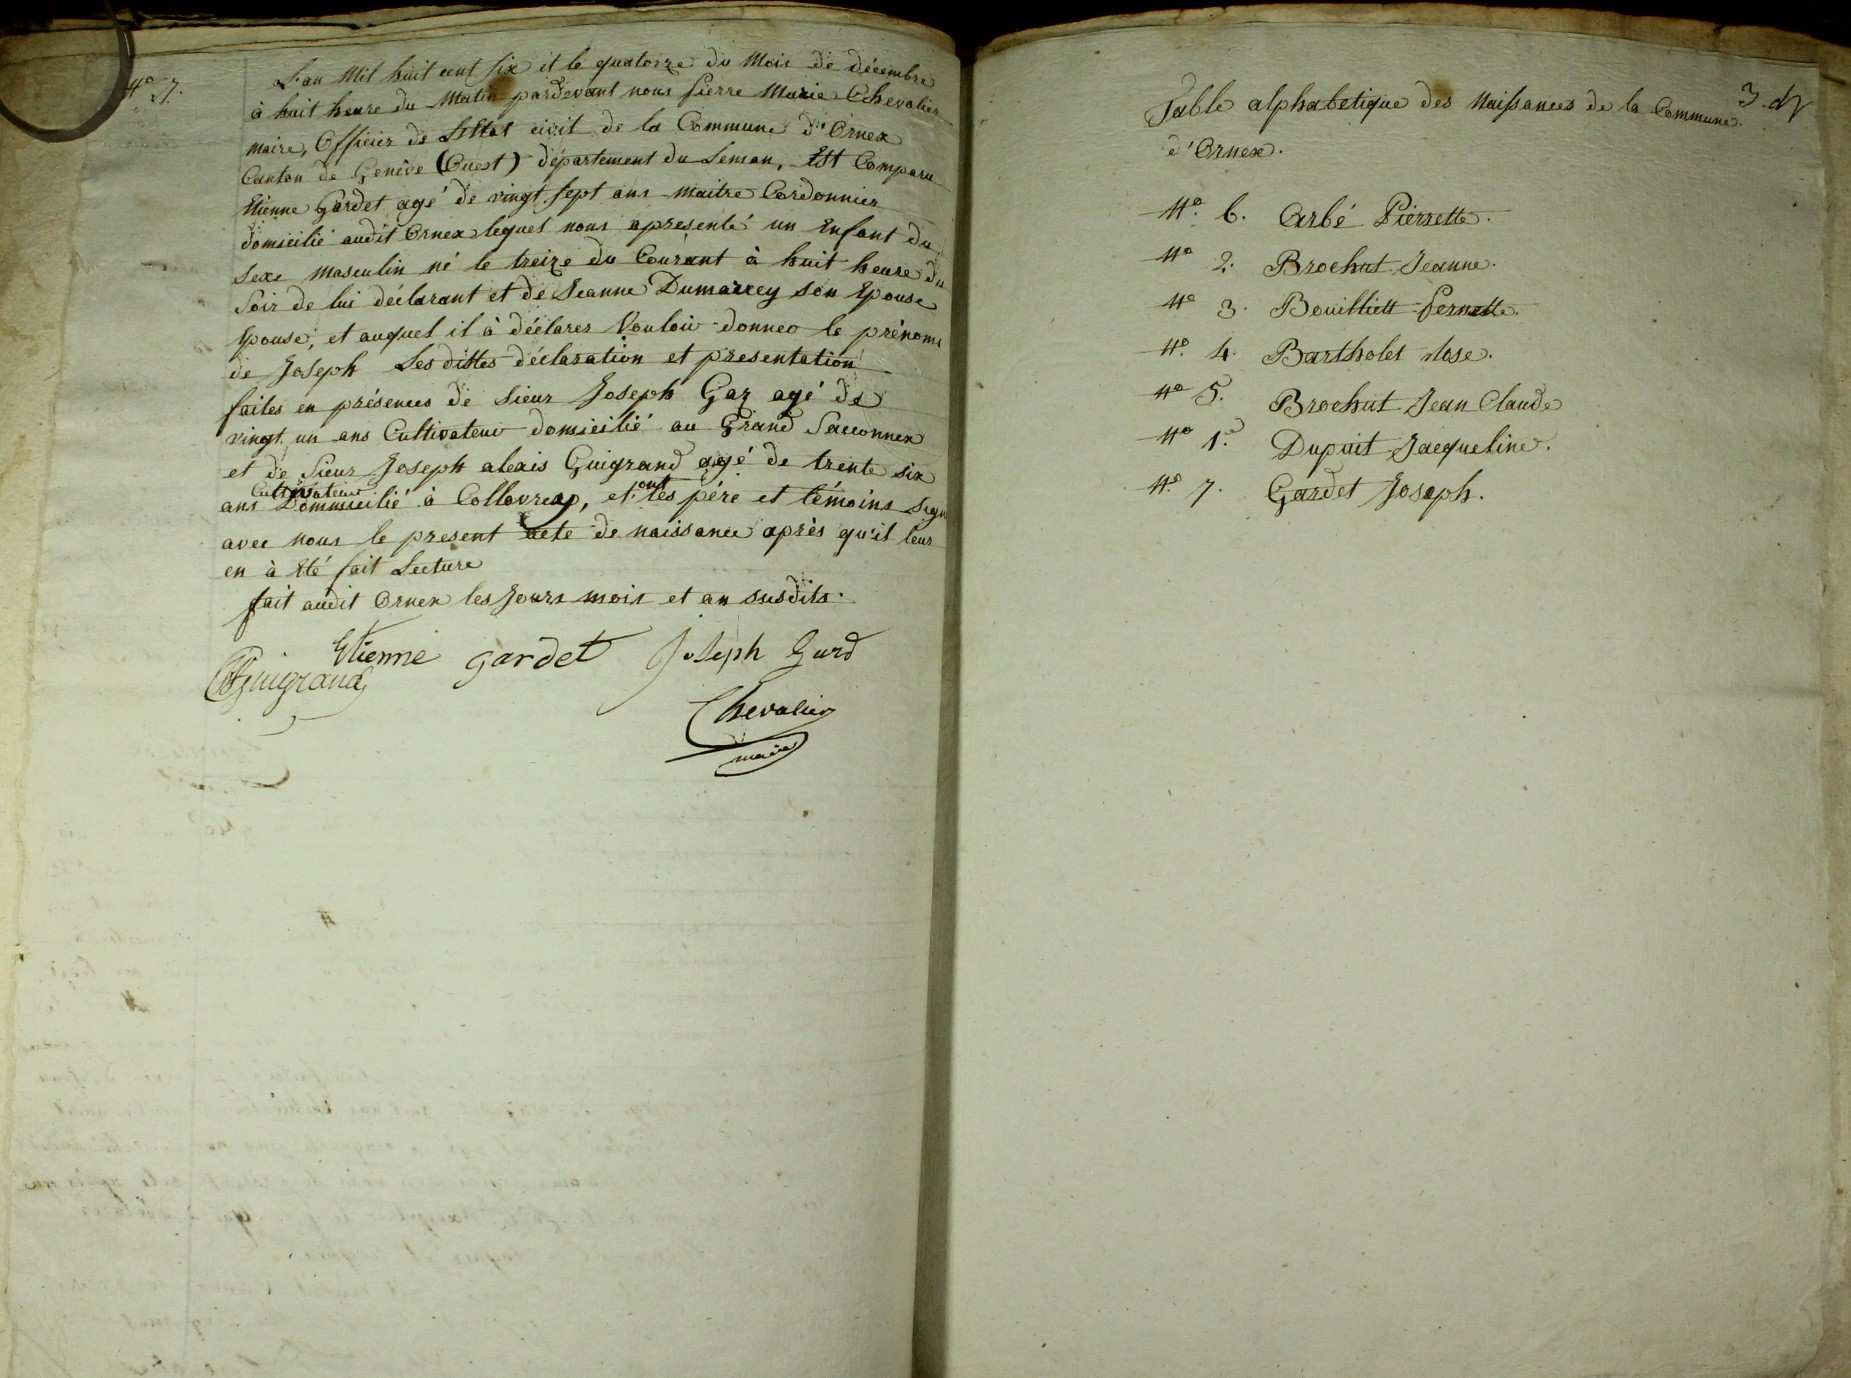 N.° 7.
L'an Mil huit cent six et le quatorze du Mois de décembre
à huit heure du Matin pardevant nous Pierre Marie Chevalier
maire, Officier de Lettat civil de la Commune d'Ornex
Canton de Genève (Ouest) département du Leman, Est Comparu
Etienne Gardet agé de vingt sept ans maitre Cordonnier
domicilié audit Ornex lequel nous apresenté un Enfant du
Sexe masculin né le treize du Courant à huit heure du
Soir de lui déclarant et de Jeanne Dumarrey son Epouse
Epouse, et auquel il à déclarer Vouloir donner le prénoms
de Joseph Les dittes déclaration et presentation
faites en présences de Sieur Joseph Gaz agé de
vingt un ans Cultivateur domicilié au Grand Sacconnex
et de Sieur Joseph alexis Guigrand agé de trente six
Cultivateur ont
ans Dommicilié à Collovrex, et les pére et témoins Signé
avec nous le present acte de naissance après qu'il leur
en à été fait Lecture
fait audit Ornex les Jours mois et an susdits.
Etienne gardet Joseph
Guigrand
Chevalier
maire
3
Table alphabetique des Naissances de la Commune
d'Ornex.
N.° 6. Carbé Pierrette.
N.° 2. Brochut Jeanne.
N.° 3. Bouilliett Pernette.
N.° 4. Bartholet Rose.
N.° 5. Brochut Jean Claude
N.° 1.e Dupuit Jacqueline.
N.° 7. Gardet Joseph.